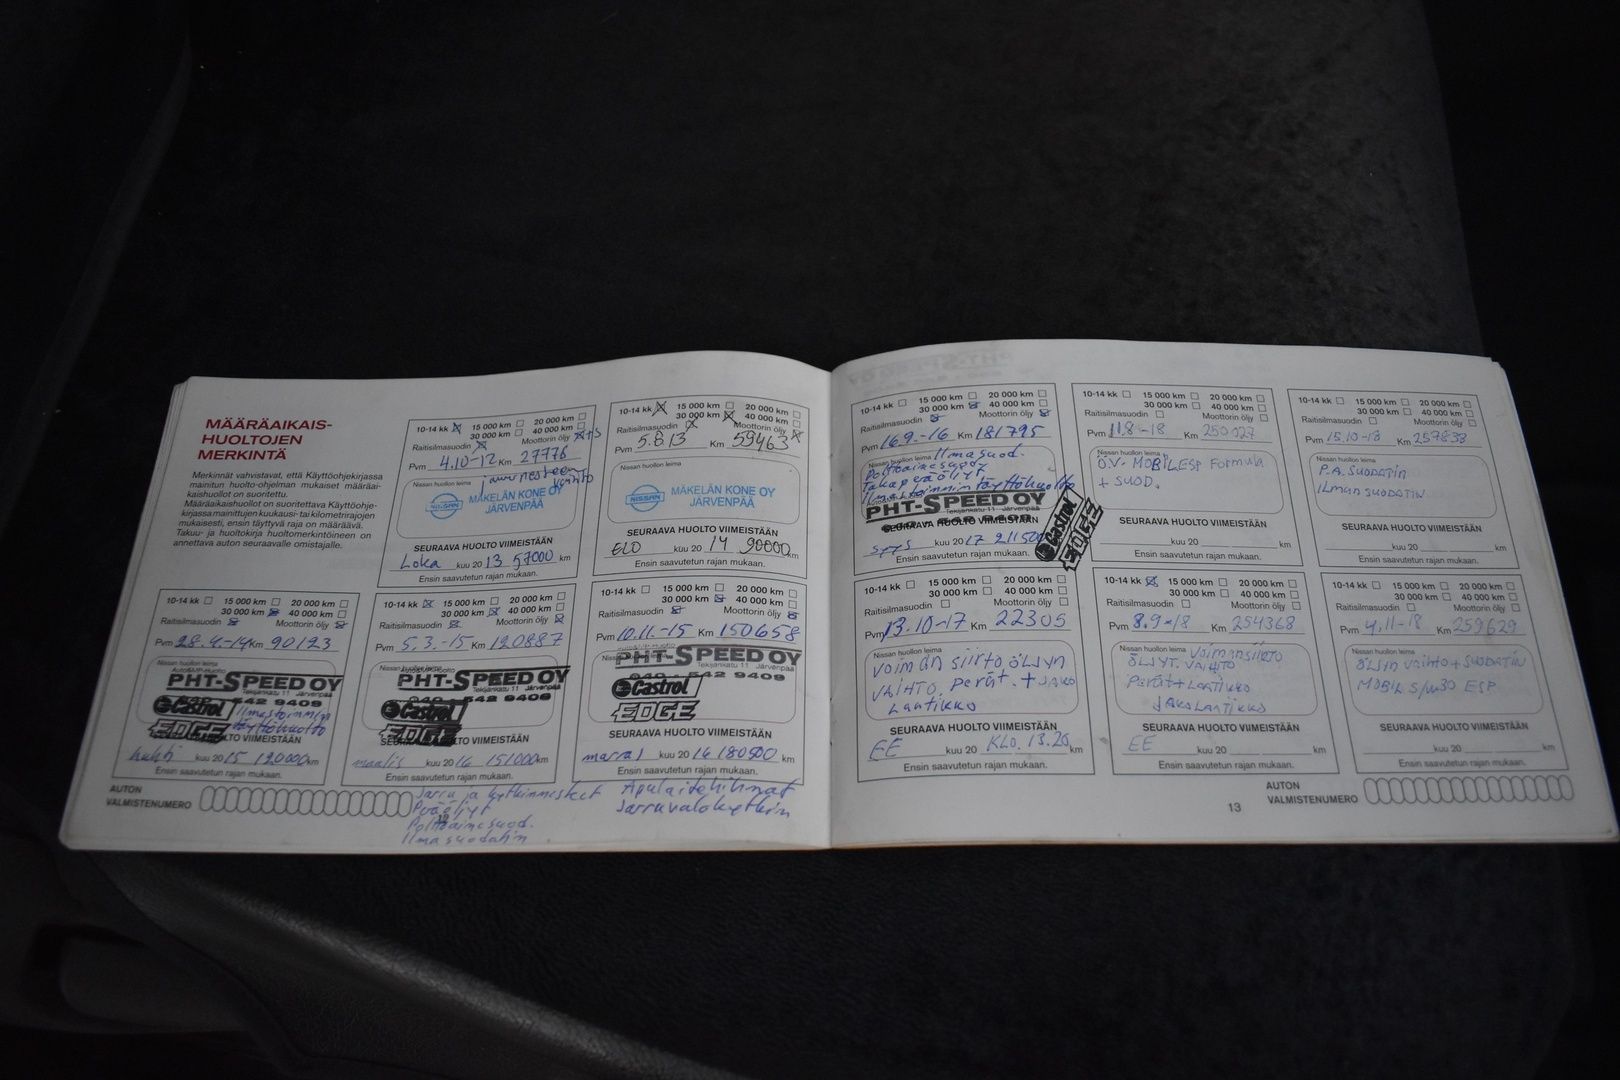 MÄÄRÄAIKAIS-
HUOLTOJEN
MERKINTÄ
Merkinnät vahvistavat, että Käyttöohjekirjassa
mainitun huolto-ohjelman mukaiset määräai-
kaishuollot on suoritettu.
Määräaikaishuollot on suoritettava Käyttöohje-
kirjassa mainittujen kuukausi- tai kilometrirajojen
mukaisesti, ensin täyttyvä raja on määräävä.
Takuu- ja huoltokirja huoltomerkintöineen on
annettava auton seuraavalle omistajalle.
10-14 kk 15 000 km 20 000 km
30 000 km 40 000 km
Raitisilmasuodin Moottorin öljy
Pvm 4.10-12 Km 27776
NISSAN MÄKELÄN KONE OY
JÄRVENPÄÄ
SEURAAVA HUOLTO VIIMEISTÄÄN
Loka kuu 20 13 57000 km
Ensin saavutetun rajan mukaan.
10-14 kk 15 000 km 20 000 km
30 000 km 40 000 km
Raitisilmasuodin Moottorin öljy
Pvm 5.8.13 Km 59463
NISSAN MÄKELÄN KONE OY
JÄRVENPÄÄ
SEURAAVA HUOLTO VIIMEISTÄÄN
ELO kuu 20 14 90000 km
Ensin saavutetun rajan mukaan.
10-14 kk 15 000 km 20 000 km
30 000 km 40 000 km
Raitisilmasuodin Moottorin öljy
Pvm 28.4.-14 Km 90123
Nissan huollon leima
PHT-SPEED OY
Tekijänkatu 11 Järvenpää
542 9409
Castrol
EDGE
Ilmastoinnin
täyttöhuolto
HUOLTO VIIMEISTÄÄN
huhti kuu 20 15 120000 km
Ensin saavutetun rajan mukaan.
10-14 kk 15 000 km 20 000 km
30 000 km 40 000 km
Raitisilmasuodin Moottorin öljy
Pvm 5.3.-15 Km 120887
Nissan huollon leima
PHT-SPEED OY
Tekijänkatu 11 Järvenpää
040 - 542 9409
Castrol
EDGE
SEURAAVA HUOLTO VIIMEISTÄÄN
maalis kuu 20 16 151000 km
Ensin saavutetun rajan mukaan.
10-14 kk 15 000 km 20 000 km
30 000 km 40 000 km
Raitisilmasuodin Moottorin öljy
Pvm 10.11.-15 Km 150658
Nissan huollon leima
PHT-SPEED OY
Tekijänkatu 11 Järvenpää
040 - 542 9409
Castrol
EDGE
SEURAAVA HUOLTO VIIMEISTÄÄN
marras kuu 20 16 180500 km
Ensin saavutetun rajan mukaan.
AUTON
VALMISTENUMERO
Jarru ja kytkinnesteet
Peräöljyt
Polttoainesuod.
Ilmasuodatin
Apulaitehihnat
Jarruvalokytkin
10-14 kk 15 000 km 20 000 km
30 000 km 40 000 km
Raitisilmasuodin Moottorin öljy
Pvm 16.9.-16 Km 181795
Nissan huollon leima Ilmasuod.
Polttoainesuod.
Takaperäöljyt
Ilmastoinnin täyttöhuolto
PHT-SPEED OY
Tekijänkatu 11 Järvenpää
Castrol
EDGE
SEURAAVA HUOLTO VIIMEISTÄÄN
syys kuu 20 17 211500
Ensin saavutetun rajan mukaan.
10-14 kk 15 000 km 20 000 km
30 000 km 40 000 km
Raitisilmasuodin Moottorin öljy
Pvm 11.8-18 Km 250027
Nissan huollon leima
Ö.V. MOBIL ESP Formula
+ SUOD.
SEURAAVA HUOLTO VIIMEISTÄÄN
kuu 20 km
Ensin saavutetun rajan mukaan.
10-14 kk 15 000 km 20 000 km
30 000 km 40 000 km
Raitisilmasuodin Moottorin öljy
Pvm 15.10-18 Km 257838
Nissan huollon leima
P.A. SUODATIN
ILMAN SUODATIN
SEURAAVA HUOLTO VIIMEISTÄÄN
kuu 20 km
Ensin saavutetun rajan mukaan.
10-14 kk 15 000 km 20 000 km
30 000 km 40 000 km
Raitisilmasuodin Moottorin öljy
Pvm 13.10-17 Km 22305
Nissan huollon leima
VOIMAN SIIRTO ÖLJYN
VAIHTO. Perät. + JAKO
LAATIKKO
SEURAAVA HUOLTO VIIMEISTÄÄN
EE kuu 20 KLO. 13.20 km
Ensin saavutetun rajan mukaan.
10-14 kk 15 000 km 20 000 km
30 000 km 40 000 km
Raitisilmasuodin Moottorin öljy
Pvm 8.9-18 Km 254368
Nissan huollon leima VOIMANSIIRTO
ÖLJYT. VAIHTO
Perät + LAATIKKO
JAKOLAATIKKO
SEURAAVA HUOLTO VIIMEISTÄÄN
EE kuu 20 km
Ensin saavutetun rajan mukaan.
10-14 kk 15 000 km 20 000 km
30 000 km 40 000 km
Raitisilmasuodin Moottorin öljy
Pvm 4.11-18 Km 259629
Nissan huollon leima
ÖLJYN VAIHTO + SUODATIN
MOBIL 5/W30 ESP
SEURAAVA HUOLTO VIIMEISTÄÄN
kuu 20 km
Ensin saavutetun rajan mukaan.
13
AUTON
VALMISTENUMERO